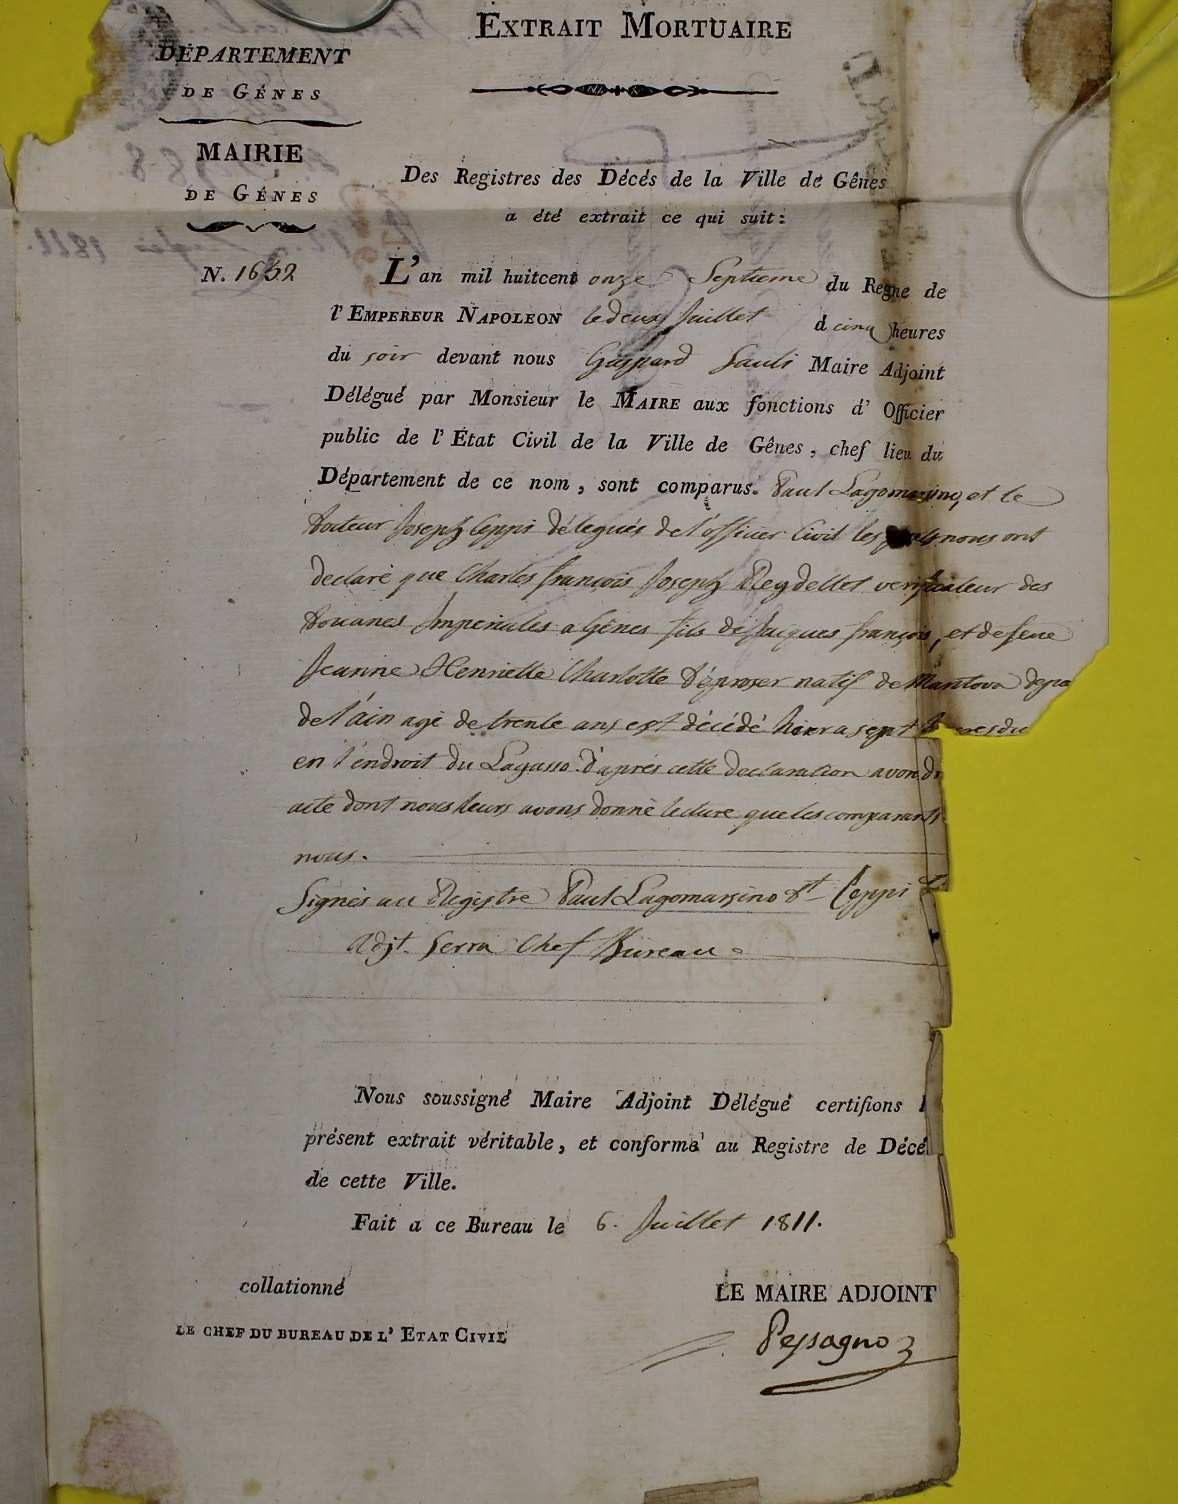 EXTRAIT MORTUAIRE
DÉPARTEMENT
DE GÉNES
MAIRIE
DE GÉNES
Des Registres des Décés de la Ville de Gênes
a été extrait ce qui suit:
N. 1652
L'an mil huitcent onze Septieme du Regne de
l'EMPEREUR NAPOLEON le deux Juillet d cinq heures
du soir devant nous Gaspard Sauli Maire Adjoint
Délégué par Monsieur le MAIRE aux fonctions d'Officier
public de l'État Civil de la Ville de Gênes, chef lieu du
Département de ce nom, sont comparus. Paul Lagomarsino, et le
Docteur Joseph Ceppi délegués de l'officier Civil les nous ont
declaré que Charles françois Joseph Reydellet verificateur des
Douanes Imperiales a Gênes fils de Jacques françois, et de feue
Jeanne Henriette Charlotte natif de Mantova depa
de l'ain agé de trente ans est décédé hier a sept du
en l'éndroit du Lagasso. d'aprés cette declaration avon dr
acte dont nous leurs avons donné lecture que les comparants
nous.
Signés au Registre Paul Lagomarsino Dt Ceppi
Adjt. Serra Chef Bureau
Nous soussigné Maire Adjoint Délégué certifions l
présent extrait véritable, et conforme au Registre de Décé
de cette Ville.
Fait a ce Bureau le 6. Juillet 1811.
collationné
LE CHEF DU BUREAU DE L'ETAT CIVIL
LE MAIRE ADJOINT
Pessagno